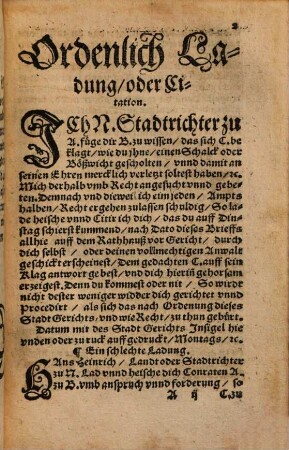 Ordenlich La-
dung/oder Ci-
tation.
ICh N. Stadtrichter zu
A. füge dir B. zu wissen/das sich C. be
klagt/wie du jhne/einen Schalck oder
Bößwicht gescholten/vnnd damit an
seinen Ehren mercklich verletzt soltest haben/ꝛc.
Mich derhalb vmb Recht angesucht vnnd gebe-
ten. Demnach vnd dieweil ich eim jeden/Ampts
halben/Recht ergehen zulassen schuldig/So la-
de heische vnnd Citir ich dich/das du auff Din-
stag schierst kummend/nach Dato dieses Brieffs
allhie auff dem Rathhauß vor Gericht/durch
dich selbst/oder deinen vollmechtigen Anwalt
geschickt erscheinest/Dem gedachten C. auff sein
Klag antwort gebest/vnd dich hierin gehorsam
erzeigest. Denn du kommest oder nit/So wirdt
nicht dester weniger widder dich gerichtet vnnd
Procedirt/als sich das nach Ordenung dieses
Stadt Gerichts/vnd wie Recht/zu thun gebürt.
Datum mit des Stadt Gerichts Insigel hie
vnden oder zu ruck auff gedruckt/Montags/ꝛc.
¶ Ein schlechte Ladung.
HAns Heinrich/Landt oder Stadtrichter
zu N. Lad vnnd heische dich Conraten A.
zu B. vmb anspruch vnnd forderung/so
A ij C. zu